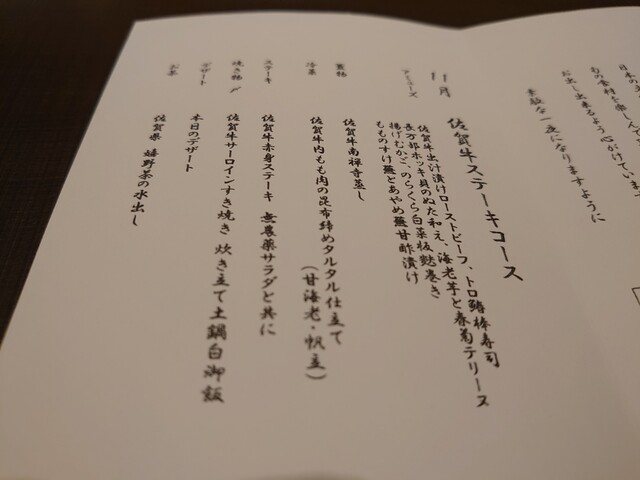 日本の
旬の食材を楽しん
お出し出来るよう心がけていま
素敵な一夜になりますように
佐賀牛ステーキコース
11月
アミューズ
佐賀牛出汁漬けローストビーフ、トロ鰆棒寿司
長万部ホッキ貝のぬた和え、海老芋と春菊テリーヌ
揚げむかご、のらくら白菜板麩巻き
もものすけ蕪とあやめ蕪甘酢漬け
蓋物
佐賀牛南禅寺蒸し
冷菜
佐賀牛内もも肉の昆布締めタルタル仕立て
(甘海老・帆立)
ステーキ
佐賀牛赤身ステーキ 無農薬サラダと共に
焼き物
佐賀牛サーロインすき焼き 炊き立て土鍋白御飯
デザート
本日のデザート
お茶
佐賀県 嬉野茶の水出し